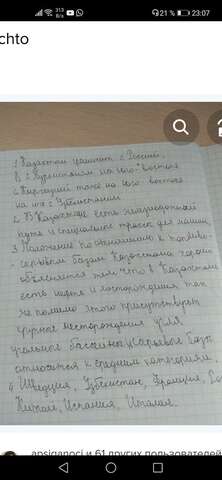 313 B/s 21 % 23:07
chto
1. Казахстан граничит с Россией,
В. с Туркменистаном на юго-востоке
с Киргизией также на юго-востоке
на юге с Узбекистаном
2. В Казахстане есть железнодорожный
путь и специальные трассы для машин
3. Положение по отношению к топливно-
сырьевым базам Казахстана хорошо
объясняется тем, что в Казахстане
есть нефть и месторождения так
же помимо этого присутствуют
крупные месторождения угля,
угольные бассейны, сырьевые базы
относится к средним категориям
4. Швеция, Узбекистан, Франция,
Китай, Испания, Италия.
apsiganocj и 61 других пользователей